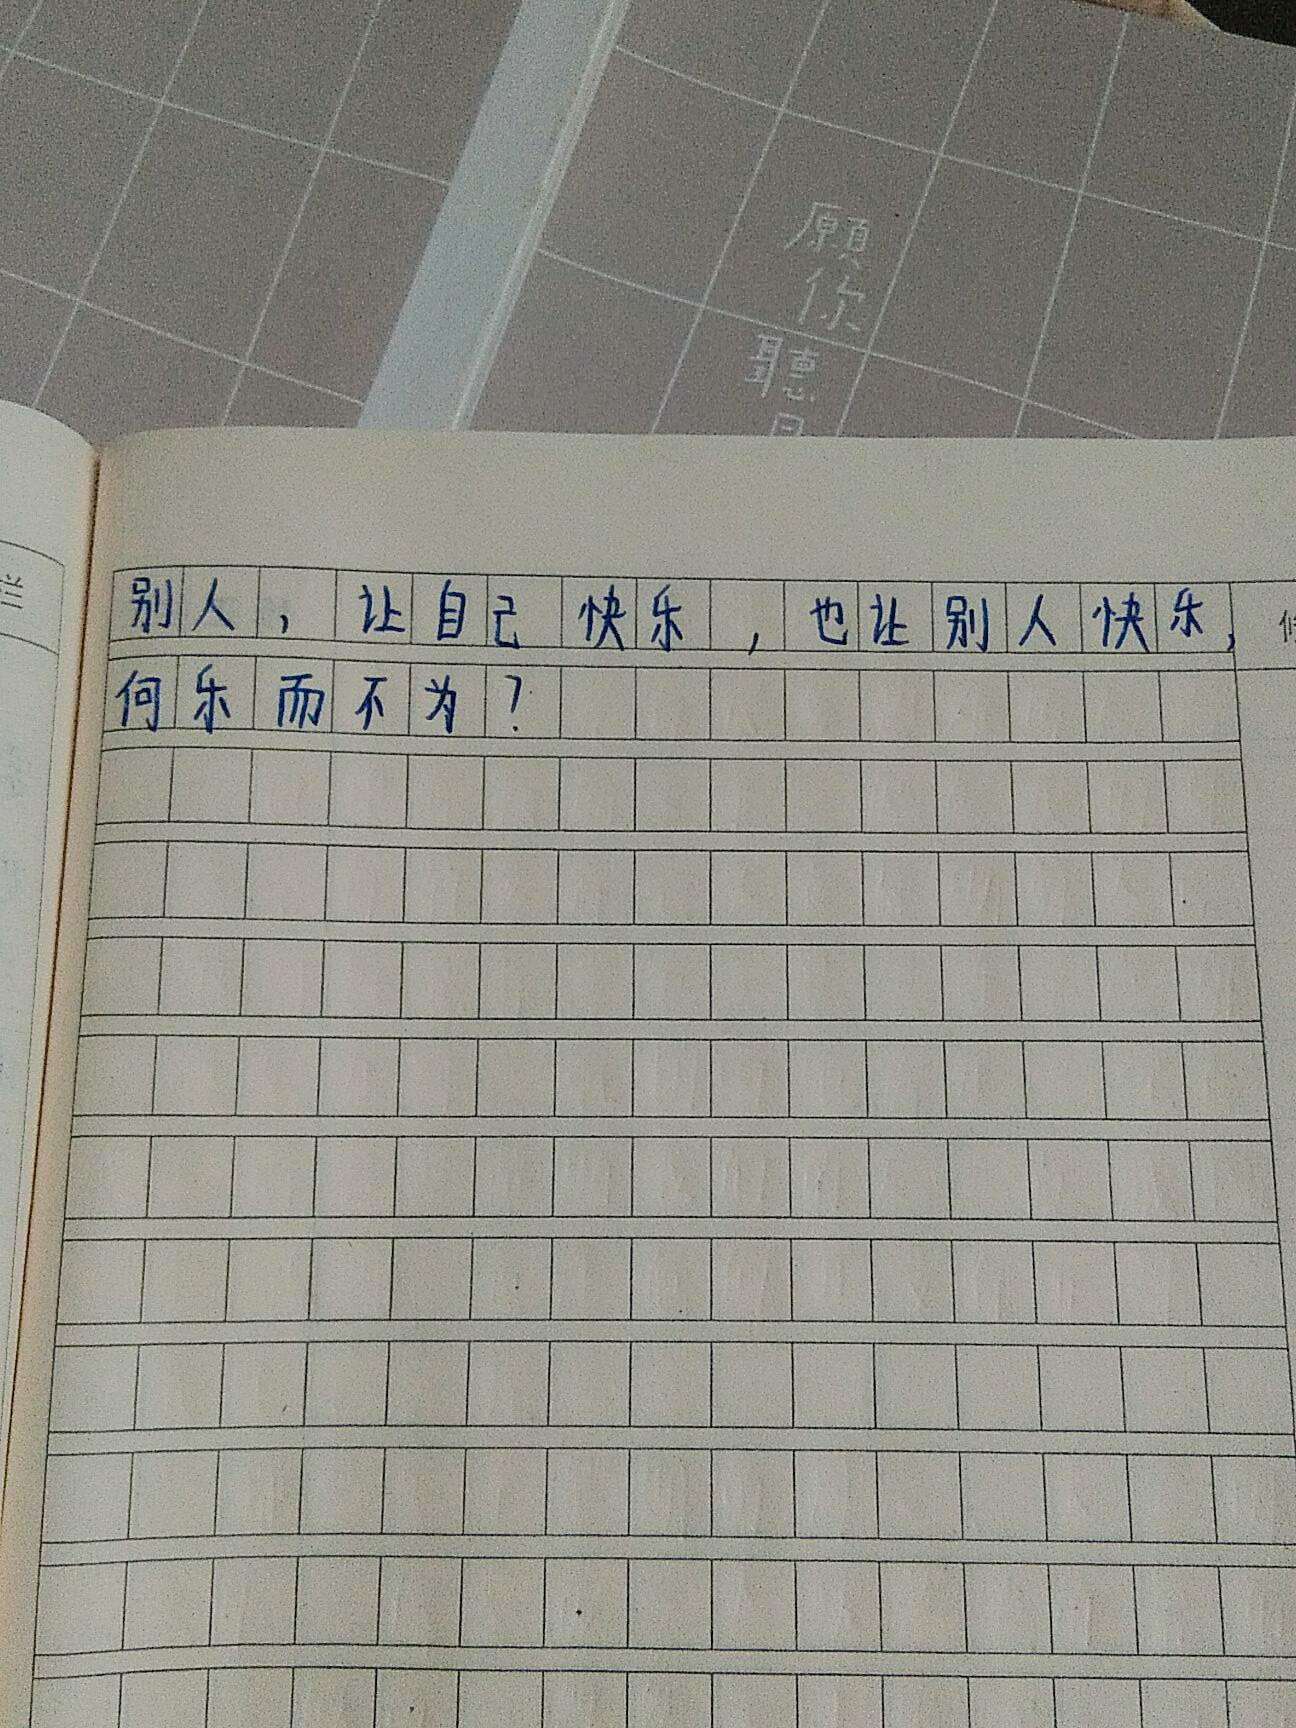 願
你
聽
别人，让自己快乐，也让别人快乐，
何乐而不为？